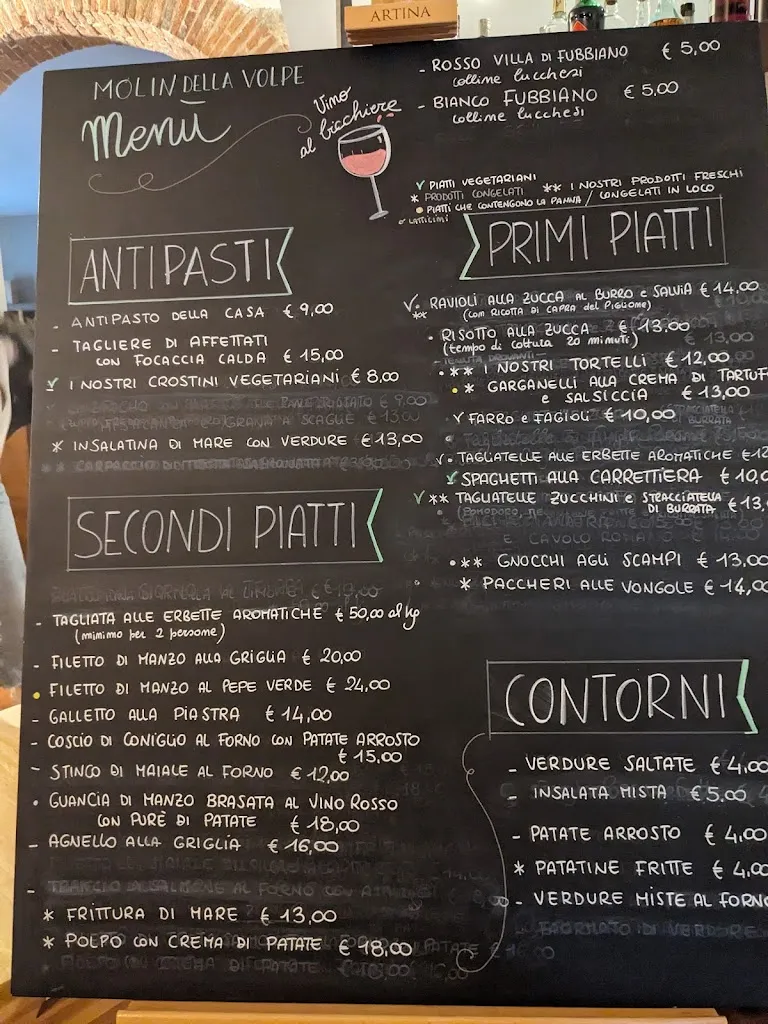 ARTINA
MOLIN DELLA VOLPE
Menù
Vino
al bicchiere
- ROSSO VILLA DI FUBBIANO € 5,00
colline lucchesi
- BIANCO FUBBIANO € 5,00
colline lucchesi
✓ PIATTI VEGETARIANI
* PRODOTTI CONGELATI ** I NOSTRI PRODOTTI FRESCHI / CONGELATI IN LOCO
• PIATTI CHE CONTENGONO LA PANNA
o LATTICINI
ANTIPASTI
- ANTIPASTO DELLA CASA € 9,00
- TAGLIERE DI AFFETTATI
CON FOCACCIA CALDA € 15,00
✓ I NOSTRI CROSTINI VEGETARIANI € 8,00
* INSALATINA DI MARE CON VERDURE € 13,00
PRIMI PIATTI
✓• ** RAVIOLI ALLA ZUCCA AL BURRO e SALVIA € 14,00
(CON RICOTTA DI CAPRA del PIGLIONE)
• RISOTTO ALLA ZUCCA € 13,00
(tempo di cottura 20 minuti)
• ** I NOSTRI TORTELLI € 12,00
• * GARGANELLI ALLA CREMA DI TARTUF
e SALSICCIA € 13,00
✓ FARRO e FAGIOLI € 10,00
✓• TAGLIATELLE ALLE ERBETTE AROMATICHE € 12
✓ SPAGHETTI ALLA CARRETTIERA € 10,0
✓ ** TAGLIATELLE ZUCCHINI e STRACCIATELLA
DI BURRATA € 13,
• ** GNOCCHI AGLI SCAMPI € 13,00
* PACCHERI ALLE VONGOLE € 14,00
SECONDI PIATTI
- TAGLIATA ALLE ERBETTE AROMATICHE € 50,00 al kg
(minimo per 2 persone)
- FILETTO DI MANZO ALLA GRIGLIA € 20,00
• FILETTO DI MANZO AL PEPE VERDE € 24,00
- GALLETTO ALLA PIASTRA € 14,00
- COSCIO DI CONIGLIO AL FORNO CON PATATE ARROSTO
€ 15,00
- STINCO DI MAIALE AL FORNO € 12,00
• GUANCIA DI MANZO BRASATA AL VINO ROSSO
CON PURÈ DI PATATE € 18,00
- AGNELLO ALLA GRIGLIA € 16,00
* FRITTURA DI MARE € 13,00
* POLPO CON CREMA DI PATATE € 18,00
CONTORNI
- VERDURE SALTATE € 4,00
- INSALATA MISTA € 5,00
- PATATE ARROSTO € 4,00
* PATATINE FRITTE € 4,00
- VERDURE MISTE AL FORNO